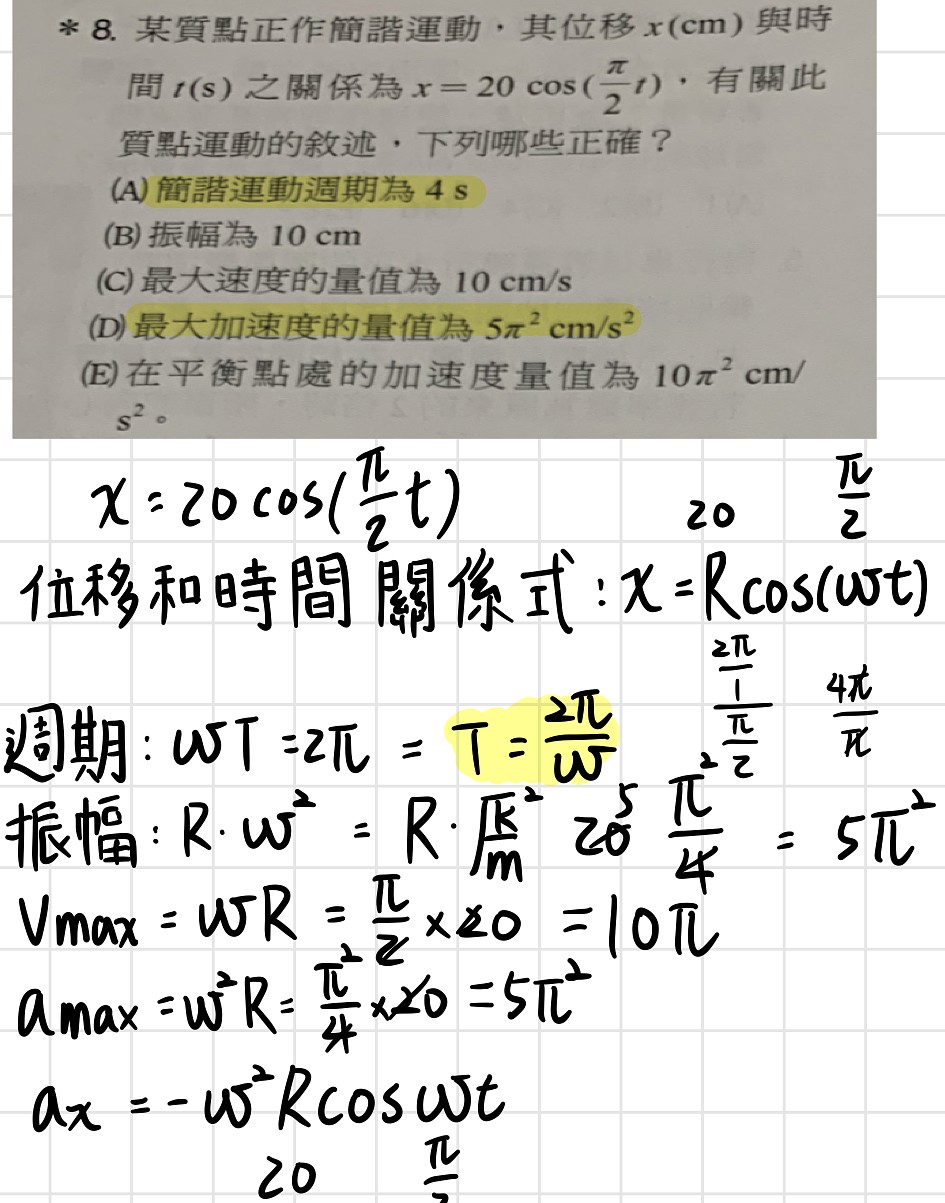 * 8. 某質點正作簡諧運動，其位移 x(cm) 與時
間 t(s) 之關係為 x = 20 cos(π/2 t)，有關此
質點運動的敘述，下列哪些正確？
(A) 簡諧運動週期為 4 s
(B) 振幅為 10 cm
(C) 最大速度的量值為 10 cm/s
(D) 最大加速度的量值為 5π² cm/s²
(E) 在平衡點處的加速度量值為 10π² cm/
s²。
x = 20 cos(π/2 t) 20 π/2
位移和時間關係式：x = R cos(ωt)
週期：ωT = 2π = T = 2π/ω (2π/1)/(π/2) 4π/π
振幅：R · ω² = R · √(k/m)² 20 5 π²/4 = 5π²
Vmax = ωR = π/2 × 20 = 10π
amax = ω²R = π²/4 × 20 = 5π²
ax = -ω²R cos ωt
20 π/2